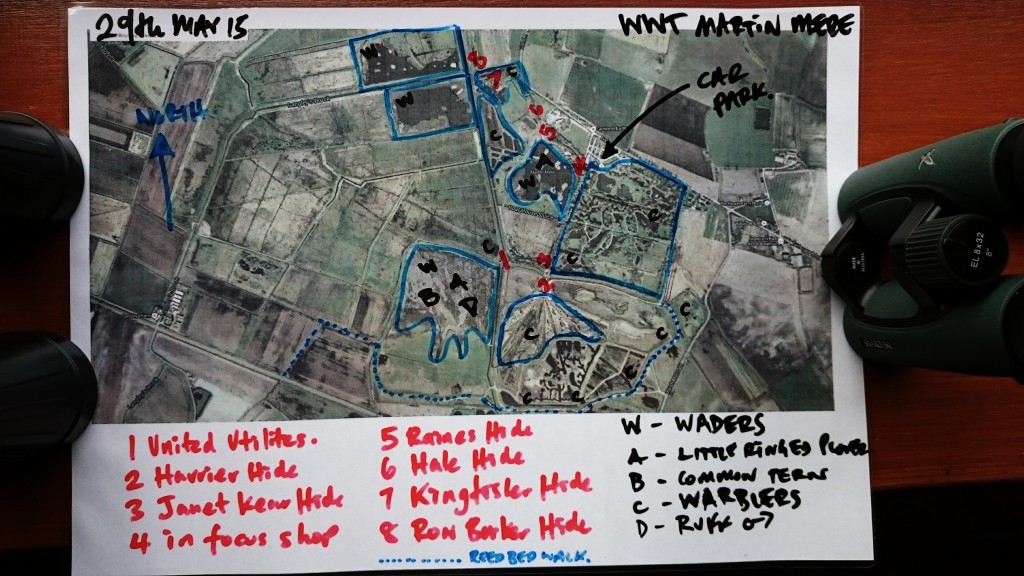 29th MAY 15
WWT MARTIN MERE
NORTH
CAR
PARK.
W
W
C
8
7
6
5
4
C
A
W
C
C
C
1
3
2
W
A
B
D
C
C
C
C
C
C
EL 8x32
8°
1 United Utilites.
2 Harrier Hide
3 Janet Kear Hide
4 in focus shop
5 Raines Hide
6 Hale Hide
7 Kingfisher Hide
8 Ron Barker Hide
REED BED WALK.
W - WADERS
A - LITTLE RINGED PLOVER
B - COMMON TERN
C - WARBLERS
D - RUFF